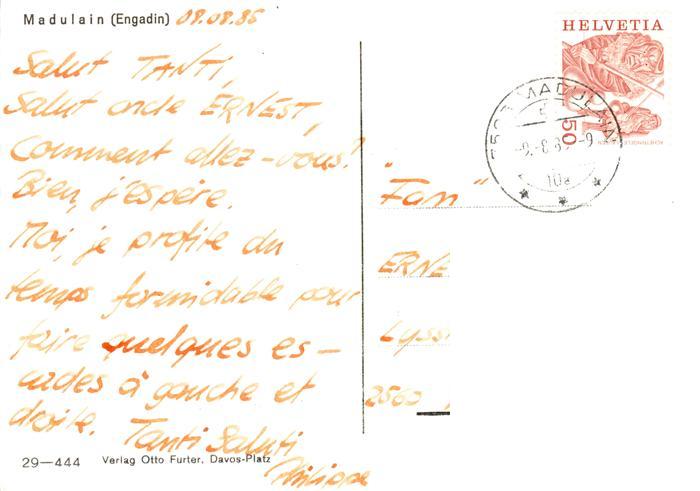 Madulain (Engadin) 09.08.85
Salut TANTI,
Salut oncle ERNEST,
Comment allez-vous?
Bien, j'espère.
Moi, je profite du
temps formidable pour
faire quelques es-
cades à gauche et
droite. Tanti Saluti
Philippe
29—444 Verlag Otto Furter, Davos-Platz
HELVETIA
50
MADULAIN
10a
"Fam"
ERNE
Lyss
2560